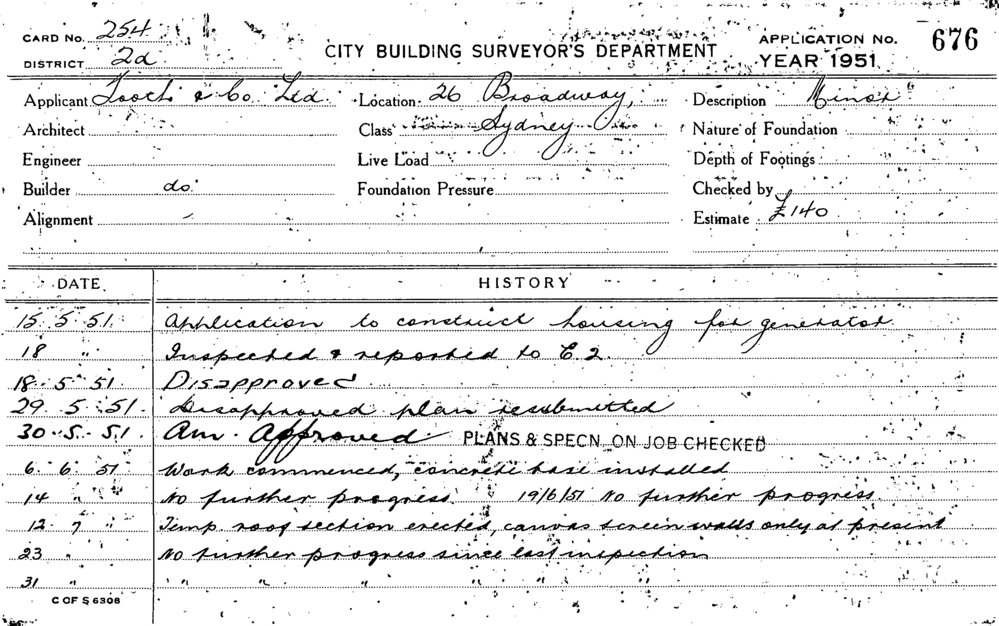 CARD No. 254
DISTRICT 2a
CITY BUILDING SURVEYOR'S DEPARTMENT
APPLICATION No. 676
YEAR 1951
Applicant Tooth & Co. Ltd. Location 26 Broadway, Description Minor
Architect Class Sydney Nature of Foundation
Engineer Live Load Depth of Footings
Builder do. Foundation Pressure Checked by
Alignment Estimate £140
DATE HISTORY
15. 5. 51. Application to construct housing for generator.
18 " Inspected & reported to E.2.
18. 5. 51. Disapproved
29. 5. 51. Disapproved plan resubmitted
30. 5. 51. Am. Approved PLANS & SPECN. ON JOB CHECKED
6. 6. 51 Work commenced, concrete base installed
14 " " No further progress. 19/6/51 No further progress.
12 7 " Temp. roof section erected, canvas screen walls only at present
23 " No further progress since last inspection
31 " " " " " " "
C OF S 6308